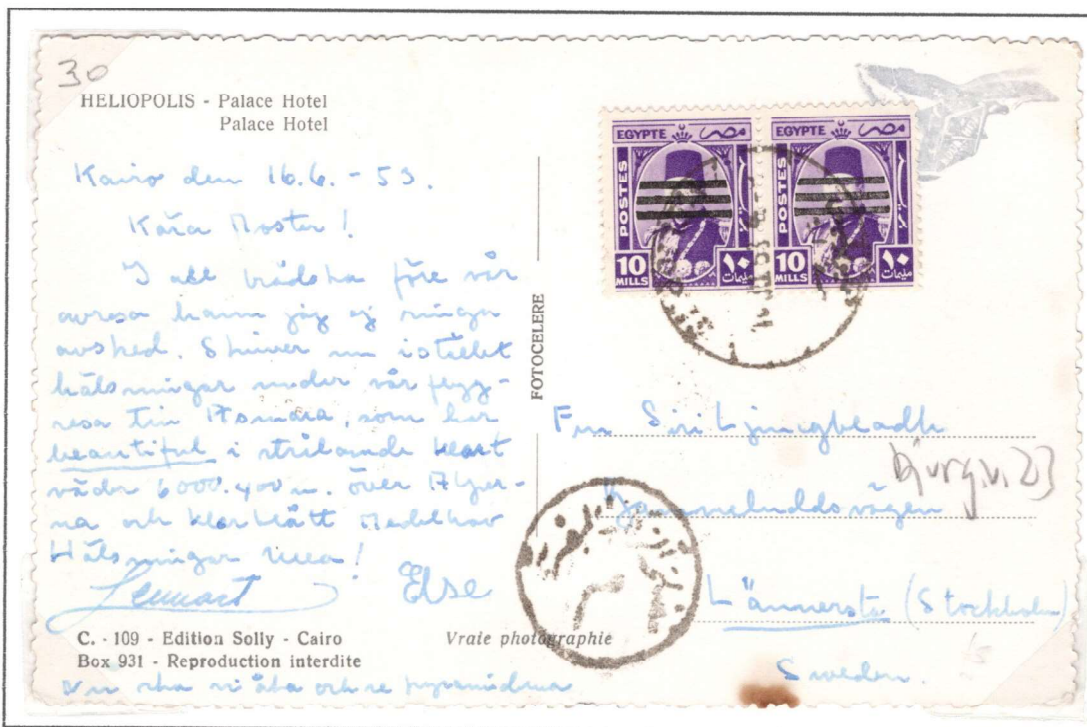 30
HELIOPOLIS - Palace Hotel
Palace Hotel
Kairo den 16.6. - 53.
Kära Moster!
I all brådska före vår
avresa hann jag ej ringa
avsked. Skriver nu istället
hälsningar under vår flyg-
resa till Asmara, som här
beautiful i strålande klart
väder 6000.400 m. över Alper-
na och klarblått Medelhav
Hälsningar
Lennart Else
C. - 109 - Edition Solly - Cairo
Box 931 - Reproduction interdite
Vraie photographie
nu ska vi åka och se pyramiderna
FOTOCELERE
EGYPTE مصر
POSTES
10 MILLS ١٠ مليمات
EGYPTE مصر
POSTES
10 MILLS ١٠ مليمات
Fru Siri Ljungbladh
Lännersta (Stockholm)
Sweden.